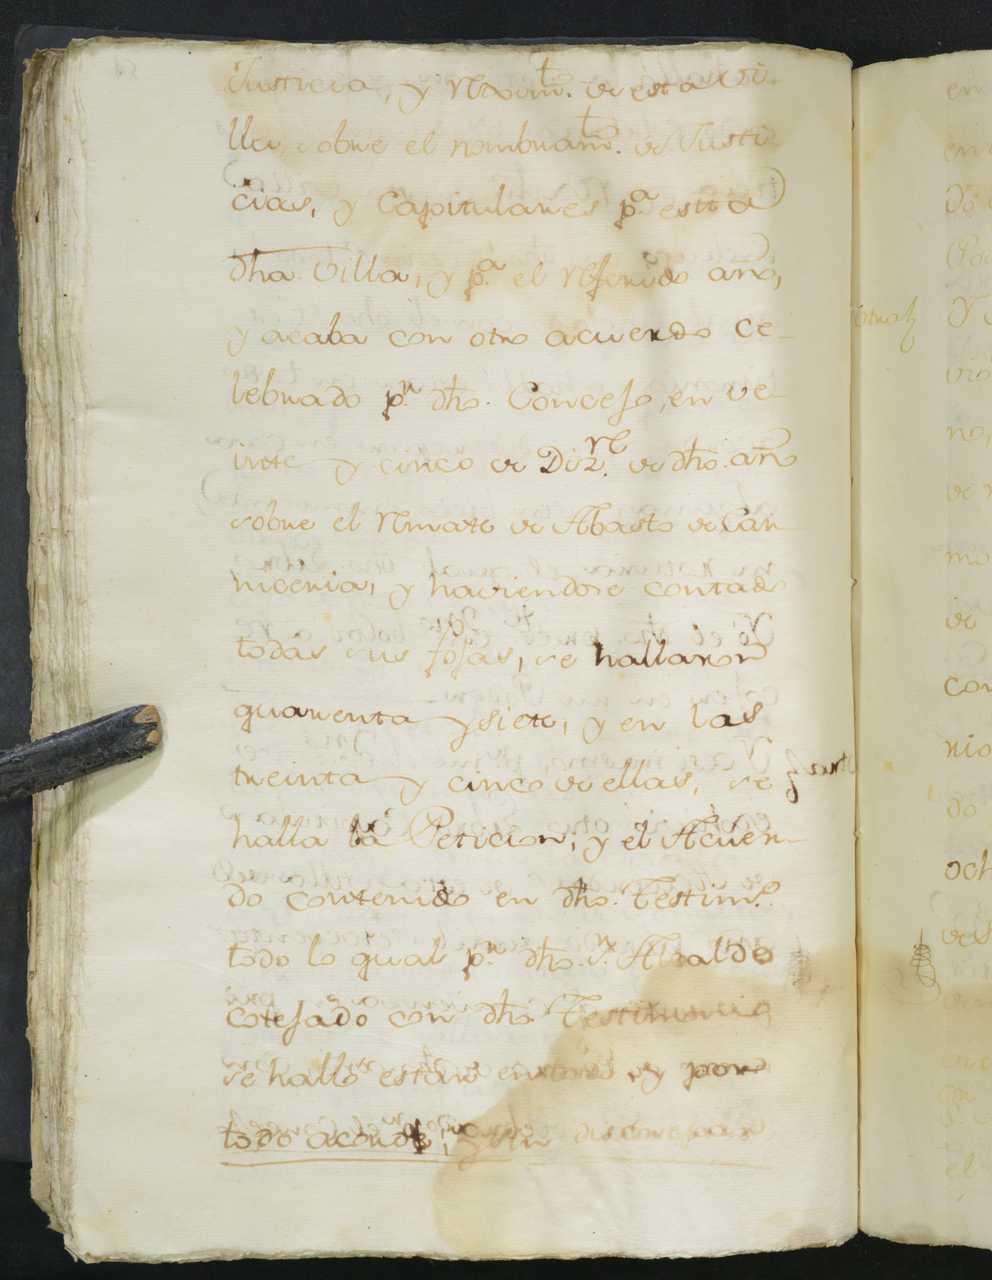 Justicia, y Rexim.to de esta Vi-
lla, sobre el nombram.to de Justi-
cias, y Capitulares p.a esta
dha Villa, y p.a el referido año,
y acaba con otro acuerdo ce-
lebrado p.r dho. Concejo, en ve-
inte y cinco de Diz.re de dho. año
sobre el Remate de Abasto de Car-
niceria, y haviendose contado
todas sus fojas, se hallaron
quarenta y siete, y en las
treinta y cinco de ellas, se
halla la Peticion, y el Acuer-
do contenido en dho. Testim.o
todo lo qual p.r dho. s.r Alcalde
cotejado con dho. Testimonio
se halló estar en todo y por
todo acorde, y sin discrepar
en
no,
de
con
nio
do
och
el